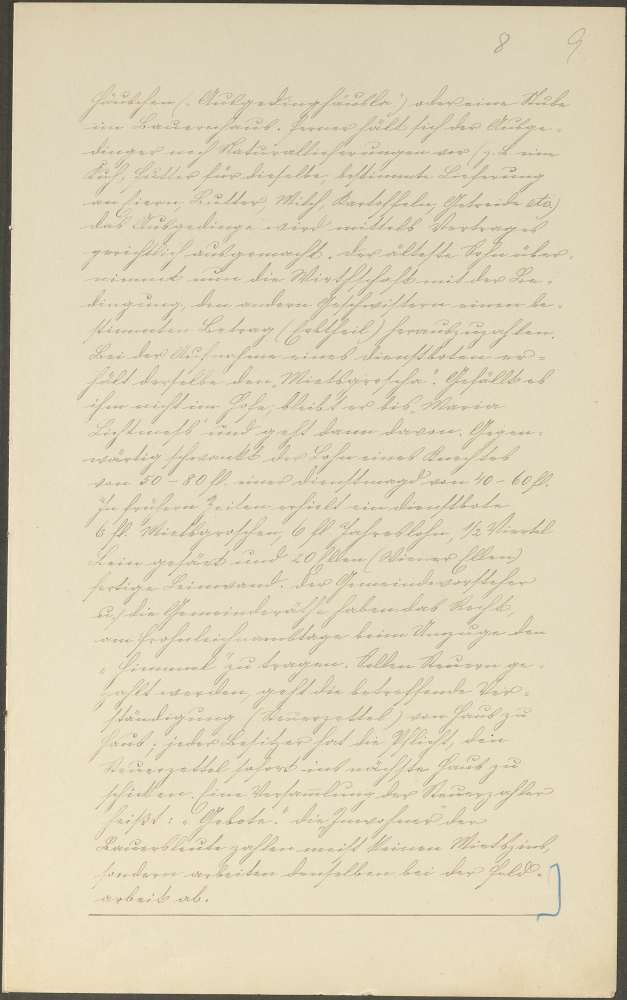 8 9
Häuschen (: Ausgedinghäusla :) oder eine Stube
im Bauernhaus. Ferner hält sich der Ausge-
dinger noch Naturallieferungen vor (z. B. eine
Kuh, Futter für dieselbe, bestimmte Lieferung
an Eiern, Butter, Milch, Kartoffeln, Getreide etc)
das Ausgedinge wird mittels Vertrages
gerichtlich ausgemacht. Der älteste Sohn über-
nimmt nun die Wirthschaft mit der Be-
dingung, den andern Geschwistern einen be-
stimmten Betrag (Erbtheil) herauszuzahlen.
Bei der Aufnahme eines Dienstboten er-
hält derselbe den „Mietsgroscha". Gefällt es
ihm nicht im Hofe, bleibt er bis „Maria
Lichtmeß" und geht dann davon. Gegen-
wärtig schwankt der Lohn eines Knechtes
von 50 - 80 fl. einer Dienstmagd von 40 - 60 fl.
In frühern Zeiten erhielt ein Dienstbote
6 fl. Mietsgroschen, 6 fl Jahreslohn, 1/2 Viertel
Lein gesäet und 20 Ellen (Wiener Ellen)
fertige Leinwand. Der Gemeindevorsteher
u. die Gemeinderäthe haben das Recht,
am Frohnleichnamstage beim Umzuge den
„Himmel" zu tragen. Sollen Steuern ge-
zahlt werden, geht die betreffende Ver-
ständigung (Steuerzettel) von Haus zu
Haus. jeder Besitzer hat die Pflicht, den
Steuerzettel sofort ins nächste Haus zu
schicken. Eine Versammlung der Steuerzahler
heißt: „Gebote." die Inwohner der
Bauersleute zahlen meist keinen Mietszins,
sondern arbeiten denselben bei der Feld-
arbeit ab.